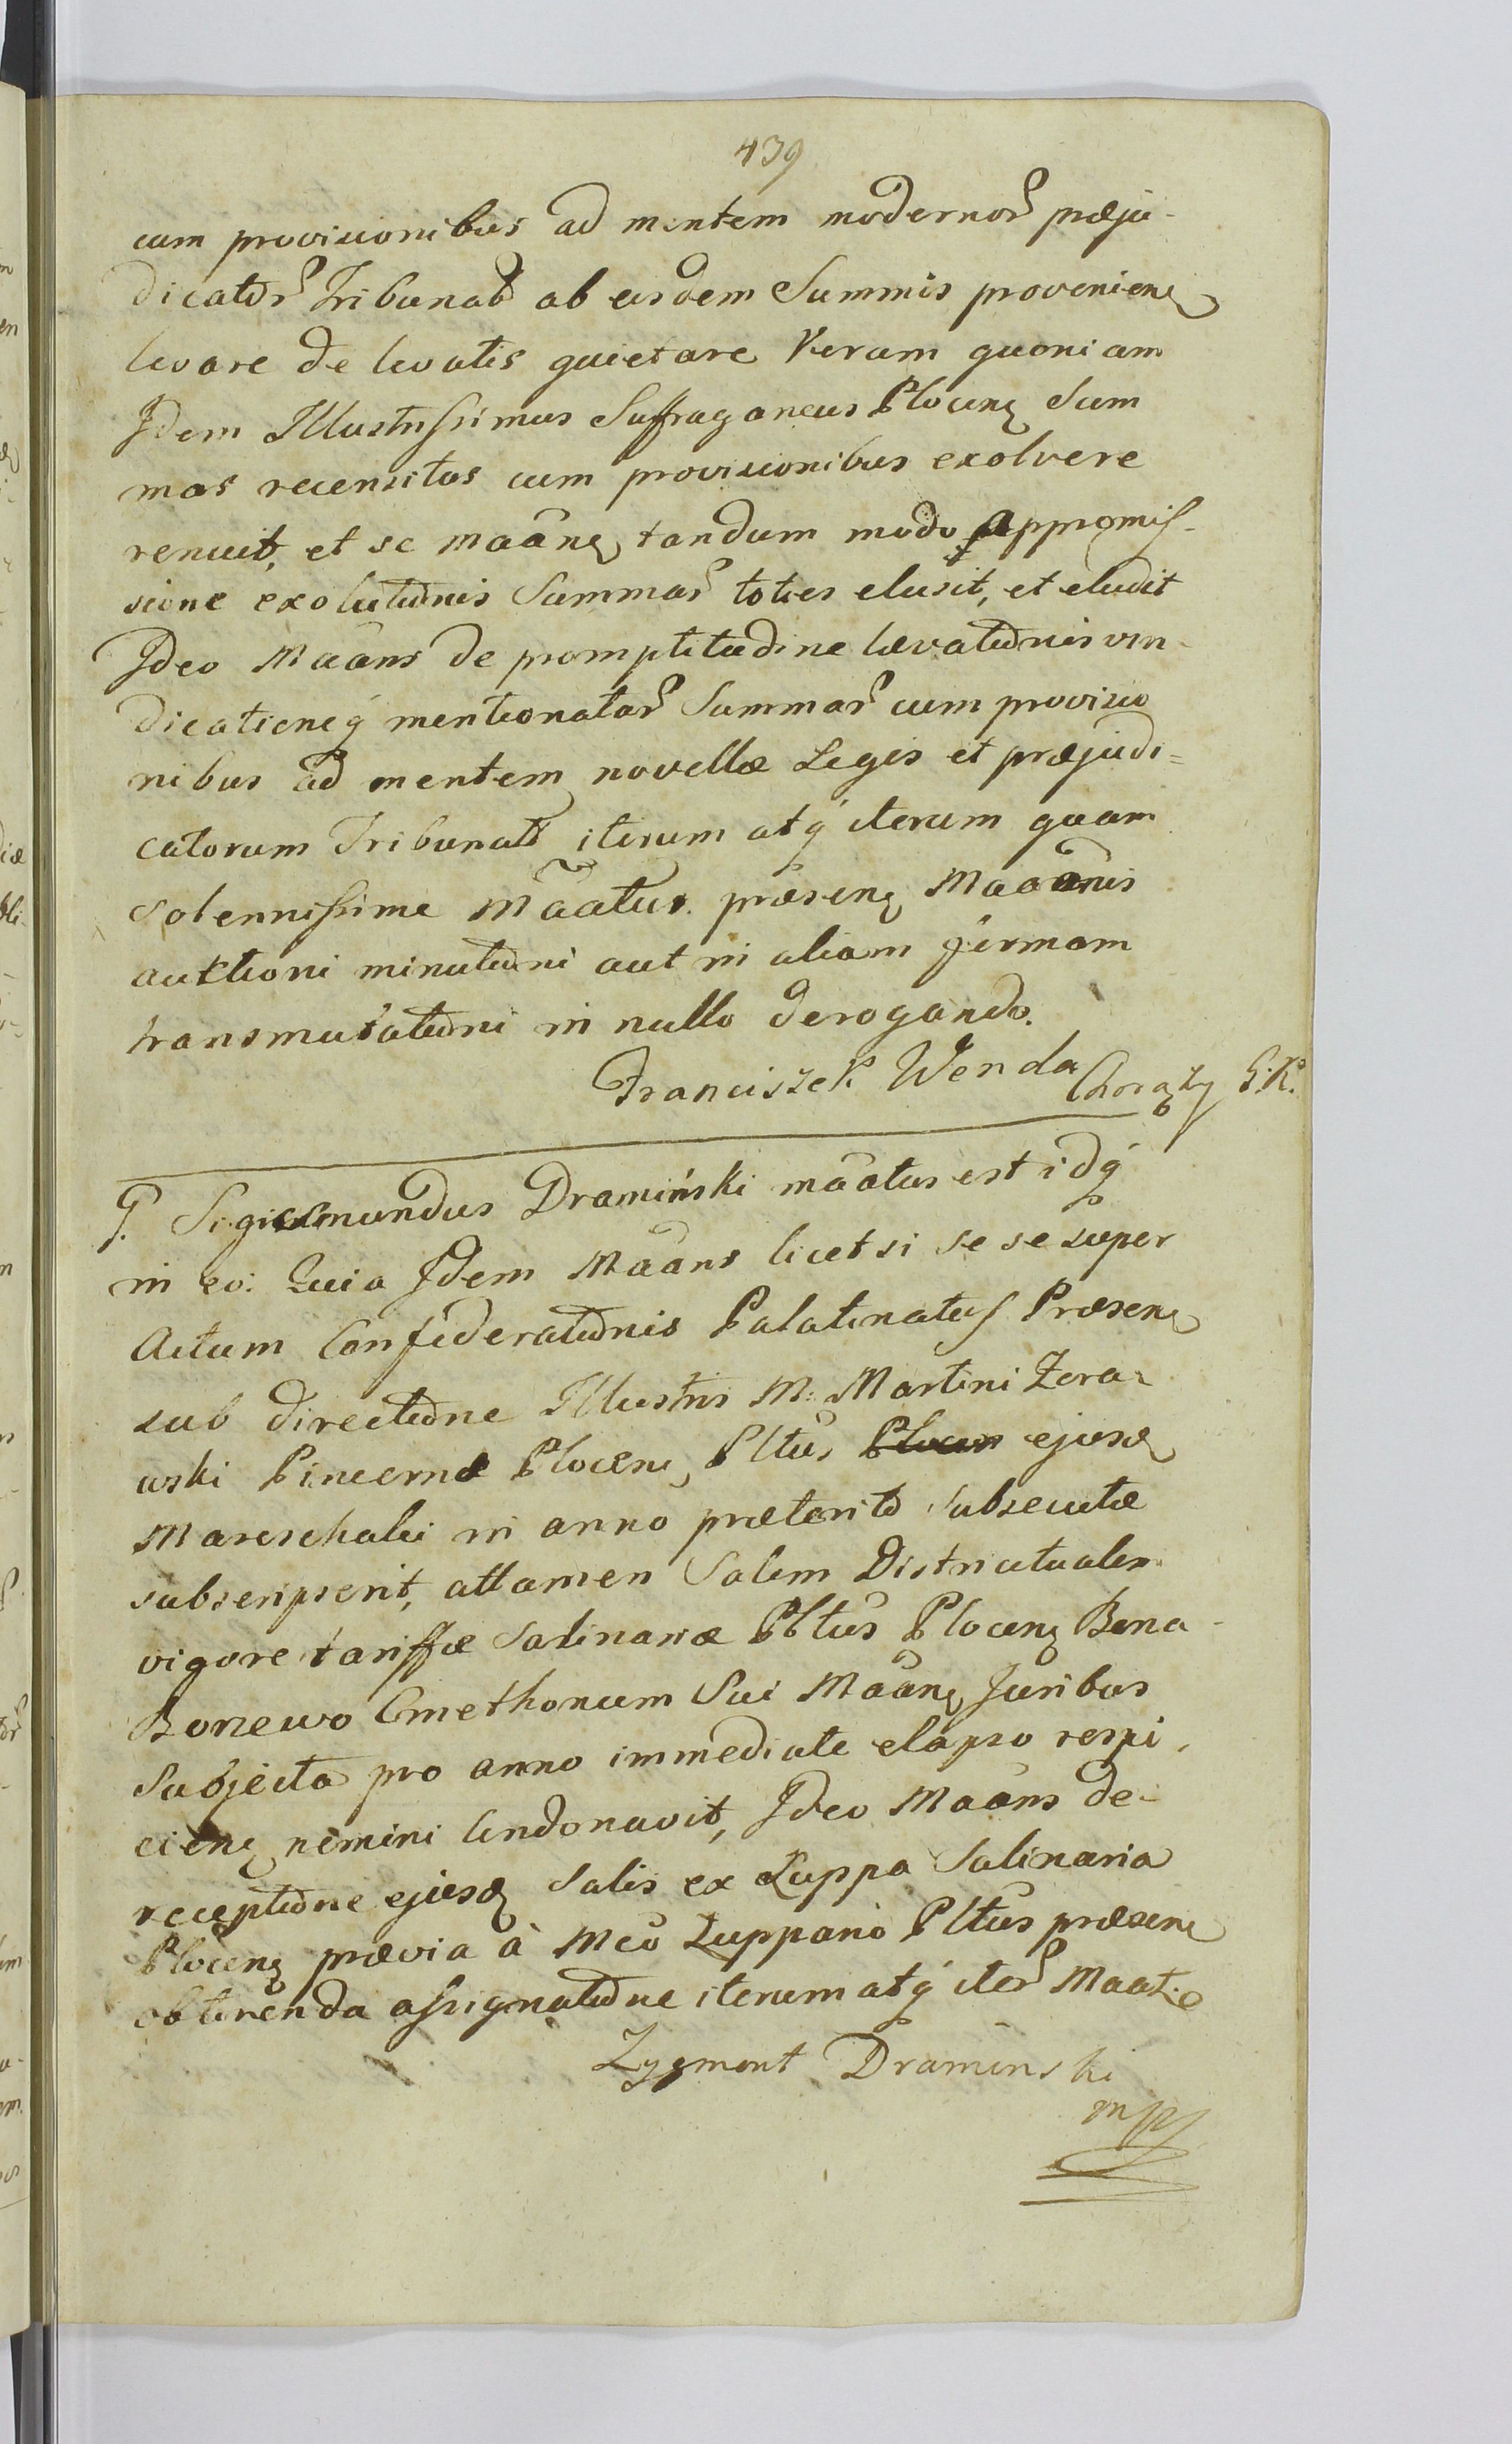 439
cum provisionibus ad mentem modernor præju-
dicator Tribunal ab eisdem Summis provenienq
levare de levatis quietare Verum quoniam
Idem Illustrissimus Suffraganeus Plocenq Sum
mas recensitas cum provisionibus exolvere
renuit, et se Maãnq tandum modo appromis-
sione exolutiõnis Summar toties elusit, et eludit
Ideo Maãns de promptitudine lævatiõnis vin-
dicationeq́ mentionatar Summar cum provisio
nibus ad mentem novellæ Legis et præjudi=
catorum Tribunal iterum atq́ iterum quam
Solennissime Maãtur præsenq Maãõnis
auktioni minutiõni aut in aliam firmam
transmutatiõni in nullo derogando.
Franciszek Wenda Chorąży G.K.
G. Sigismundus Dramiński maãtus est idq́
in eo: Quia Idem Maãns licet si se se super
Actum Confederatiõnis Palatinatus Præsenq
sub directiõne Illustris M: Martini Zera-
wski Pincernæ Plocenq Pltus Plocen ejusdq
Mareschalci in anno præterito Subsecutæ
subscripserit, attamen Salem Districtualem
vigore tariffæ Salinariæ Pltus Plocenq Bona
Borzewo Cmethonum Sui Maãnq Juribus
Subjecta pro anno immediate elapso respi-
cienq nemini Condonavit, Ideo Maãns de
receptiõne ejusdq Salis ex Zuppa Salinaria
Plocenq prævia à Mco Zuppario Pltus præsenq
obtinenda assignatiõne iterum atq́ iter Maat:o
Zygmont Dramiński
mp